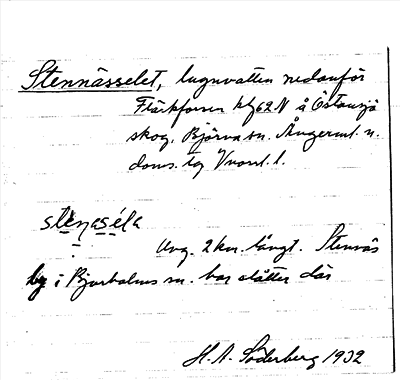 Stennässelet, lugnvatten nedanför
Flärkforsen kbl 62 N å Östansjö
skog, Björna sn. Ångerml. n.
doms. tg Vnorrl. l.
stenasela
Ung. 2 km. långt. Stennäs
by i Bjurholms sn. har slåtter där
H. A. Söderberg 1932